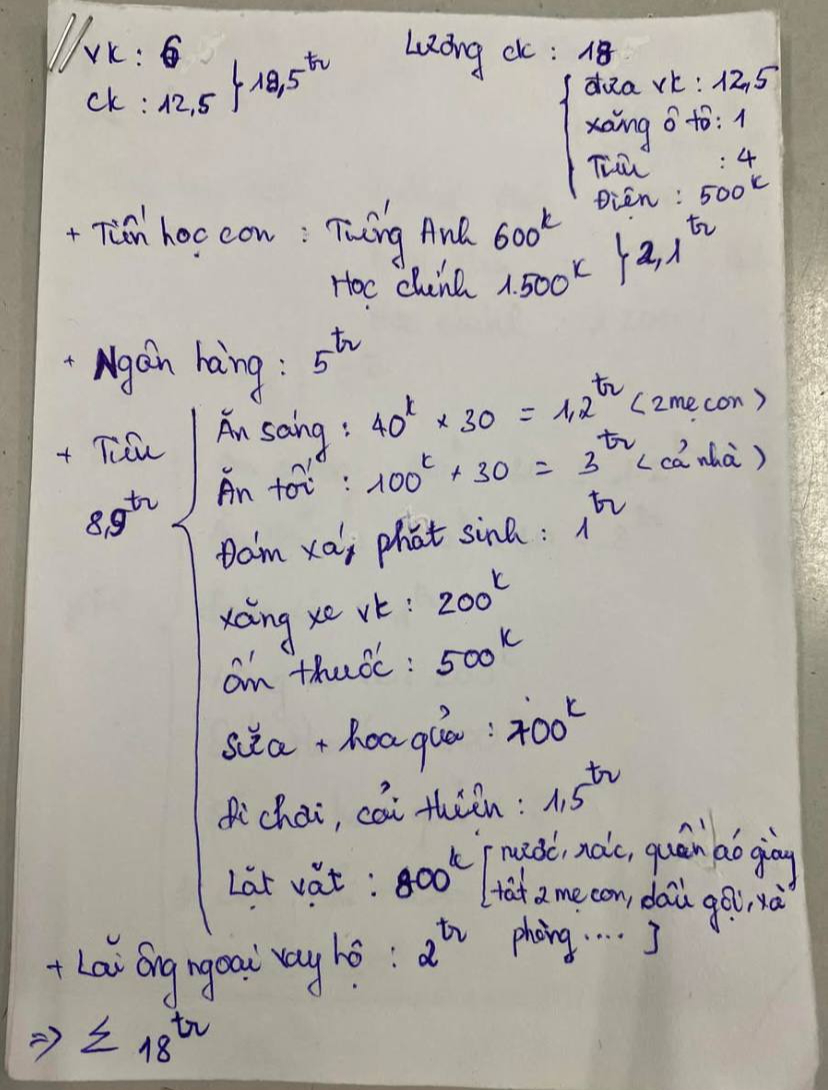 vk : 6
ck : 12,5 } 18,5tr
Lương ck : 18
đưa vk : 12,5
xăng ô tô : 1
Tiêu : 4
Điện : 500k
+ Tiền học con : Tiếng Anh 600k
Học chính 1.500k } 2,1tr
+ Ngân hàng : 5tr
+ Tiêu
8,9tr
Ăn sáng : 40k x 30 = 1,2tr (2 mẹ con)
Ăn tối : 100k x 30 = 3tr (cả nhà)
Đám xá, phát sinh : 1tr
xăng xe vk : 200k
ốm thuốc : 500k
Sữa + hoa quả : 700k
Đi chơi, cải thiện : 1,5tr
Lặt vặt : 800k [nước, rác, quần áo giày
tất 2 mẹ con, dầu gội, xà
phòng .... ]
+ Lãi ông ngoại vay hộ : 2tr
=> Σ 18tr